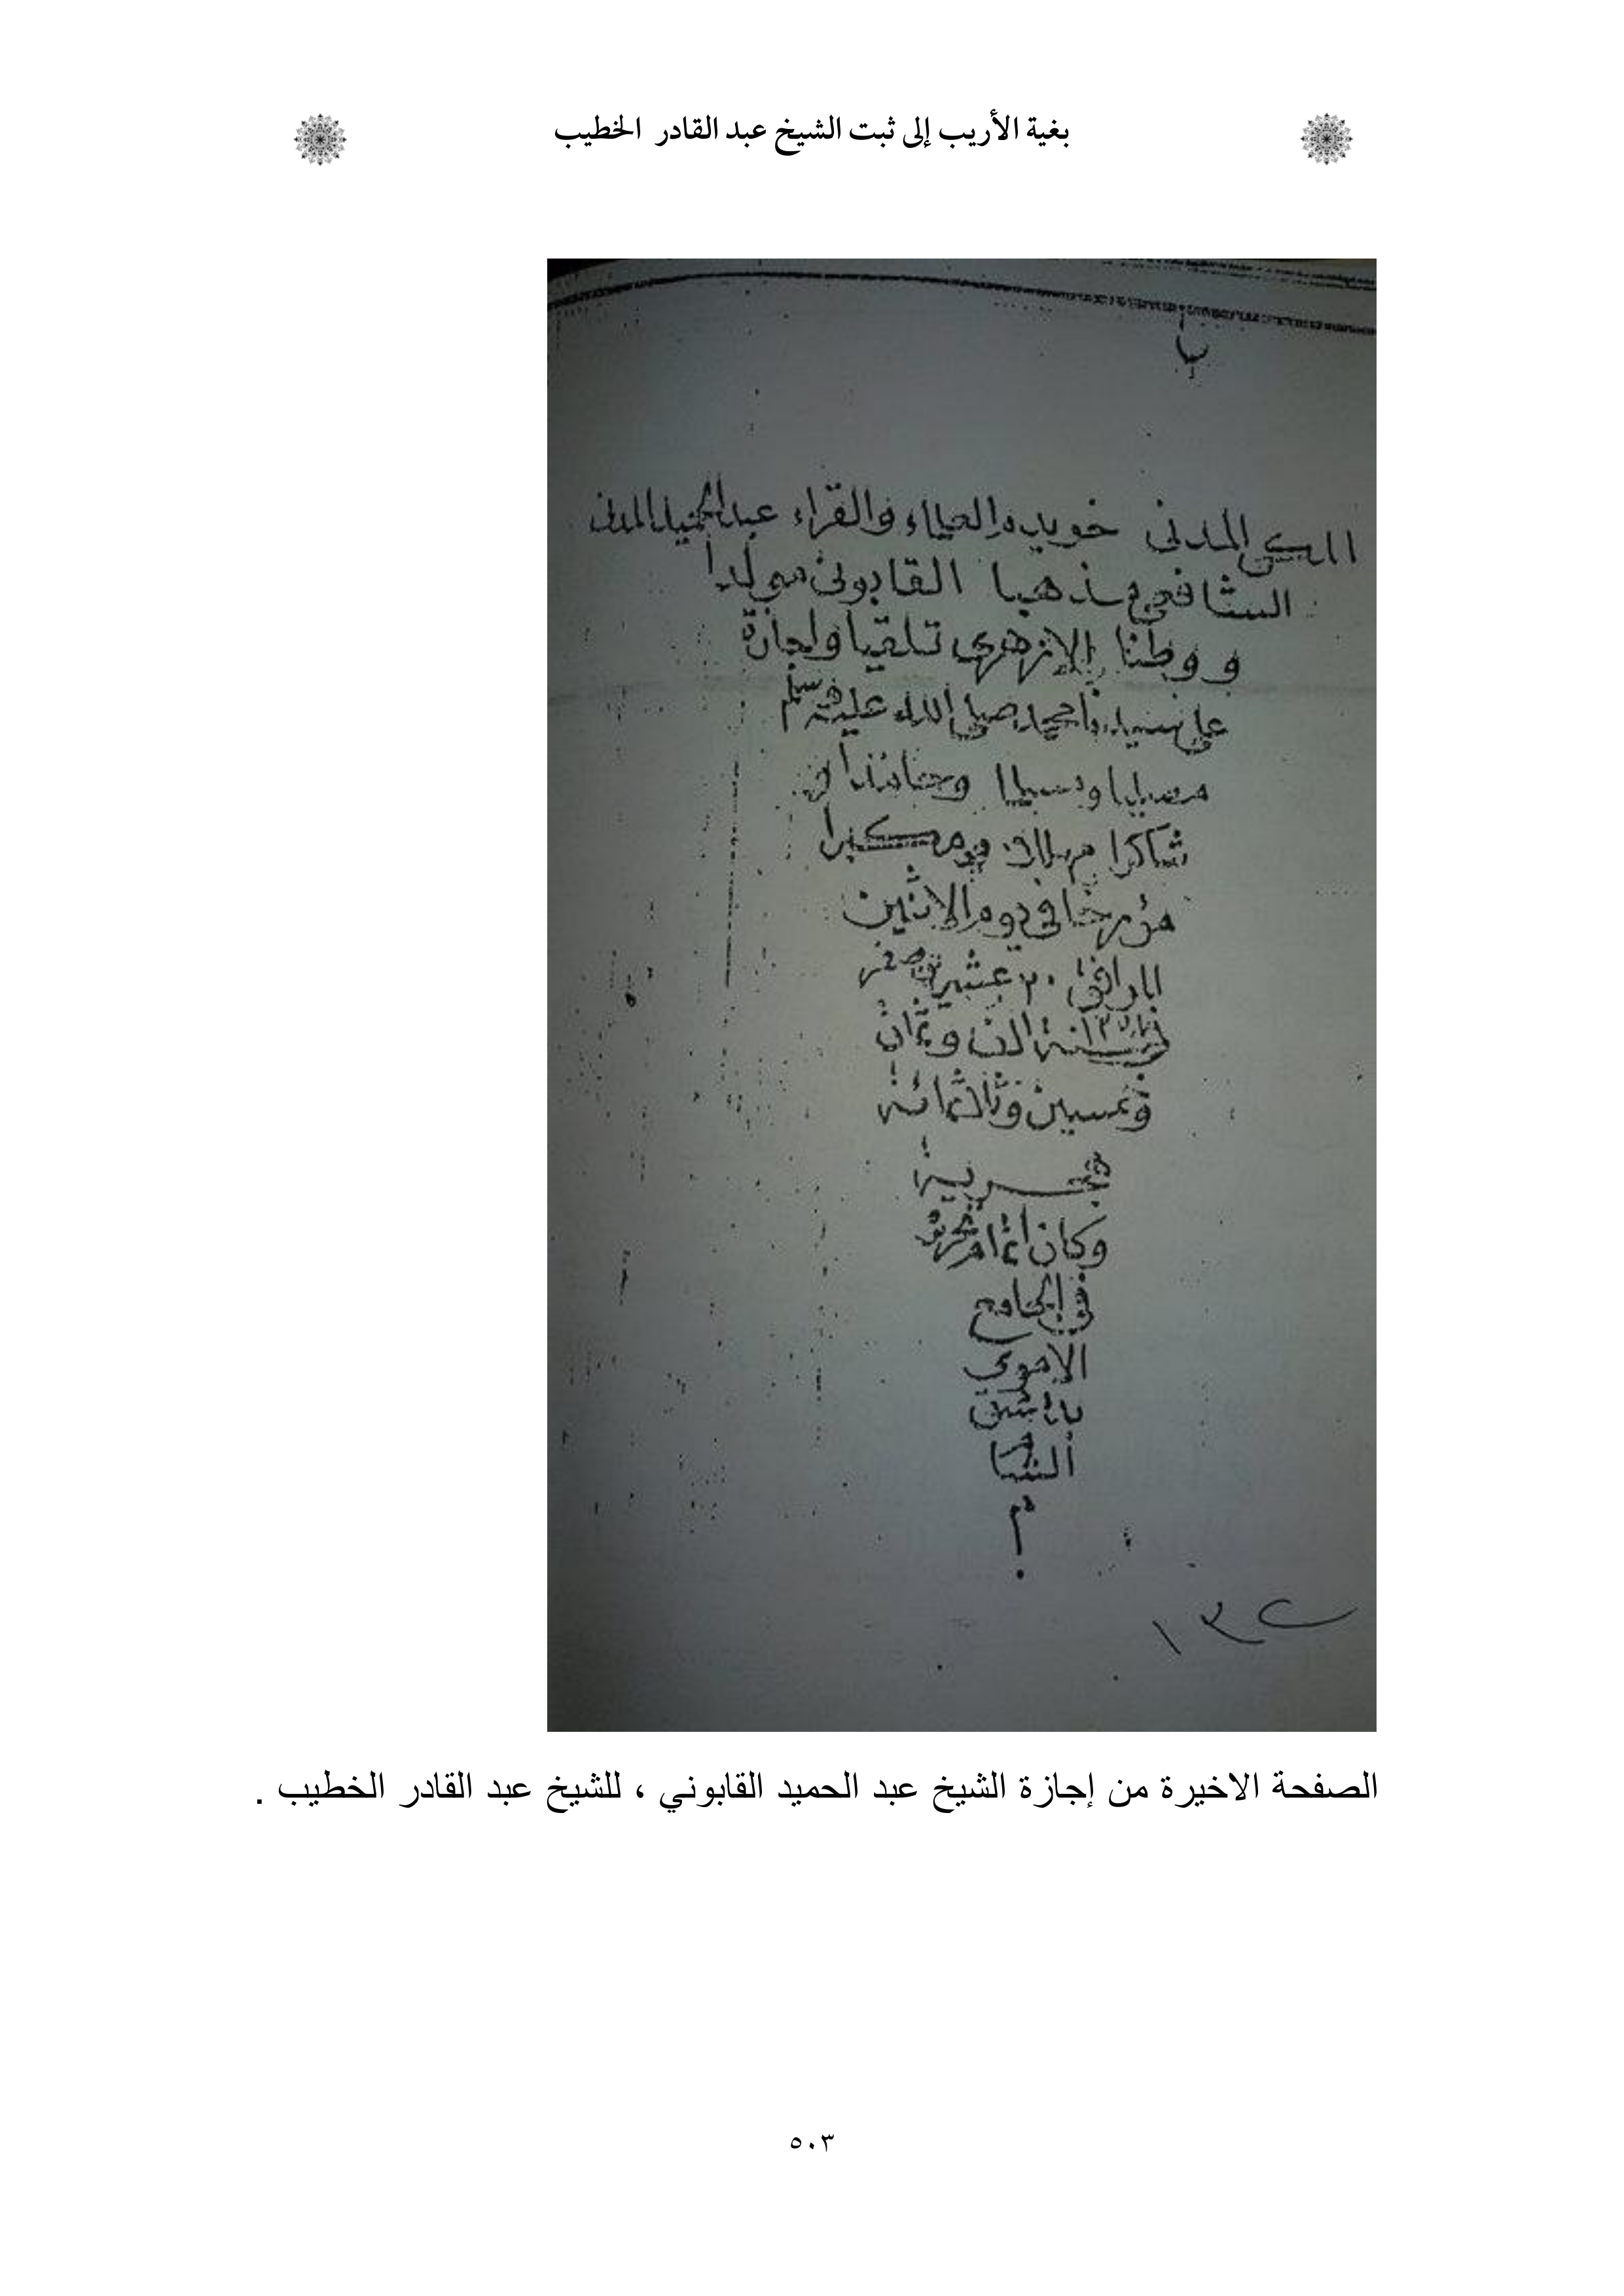 بغية الأريب إلى ثبت الشيخ عبد القادر الخطيب
المكي المدني خويدم العلماء والقراء عبد الحميد المدني
الشافعي مذهبا القابوني مولدا
و وطنا الازهري تلقيا واجازة
على سيدنا محمد صلى الله عليه وسلم
مصليا ومسلما وحامدا
شاكرا مهللا ومكبرا
مؤرخا في يوم الاثنين
الموافق ٢٠ عشرين صفر
سنة الف وثمان
وخمسين وثلاثمائة
هجرية
وكان اتمام تحريره
في الجامع
الاموي
بدمشق
الشام
م
١٣٢
الصفحة الاخيرة من إجازة الشيخ عبد الحميد القابوني ، للشيخ عبد القادر الخطيب .
٥٠٣